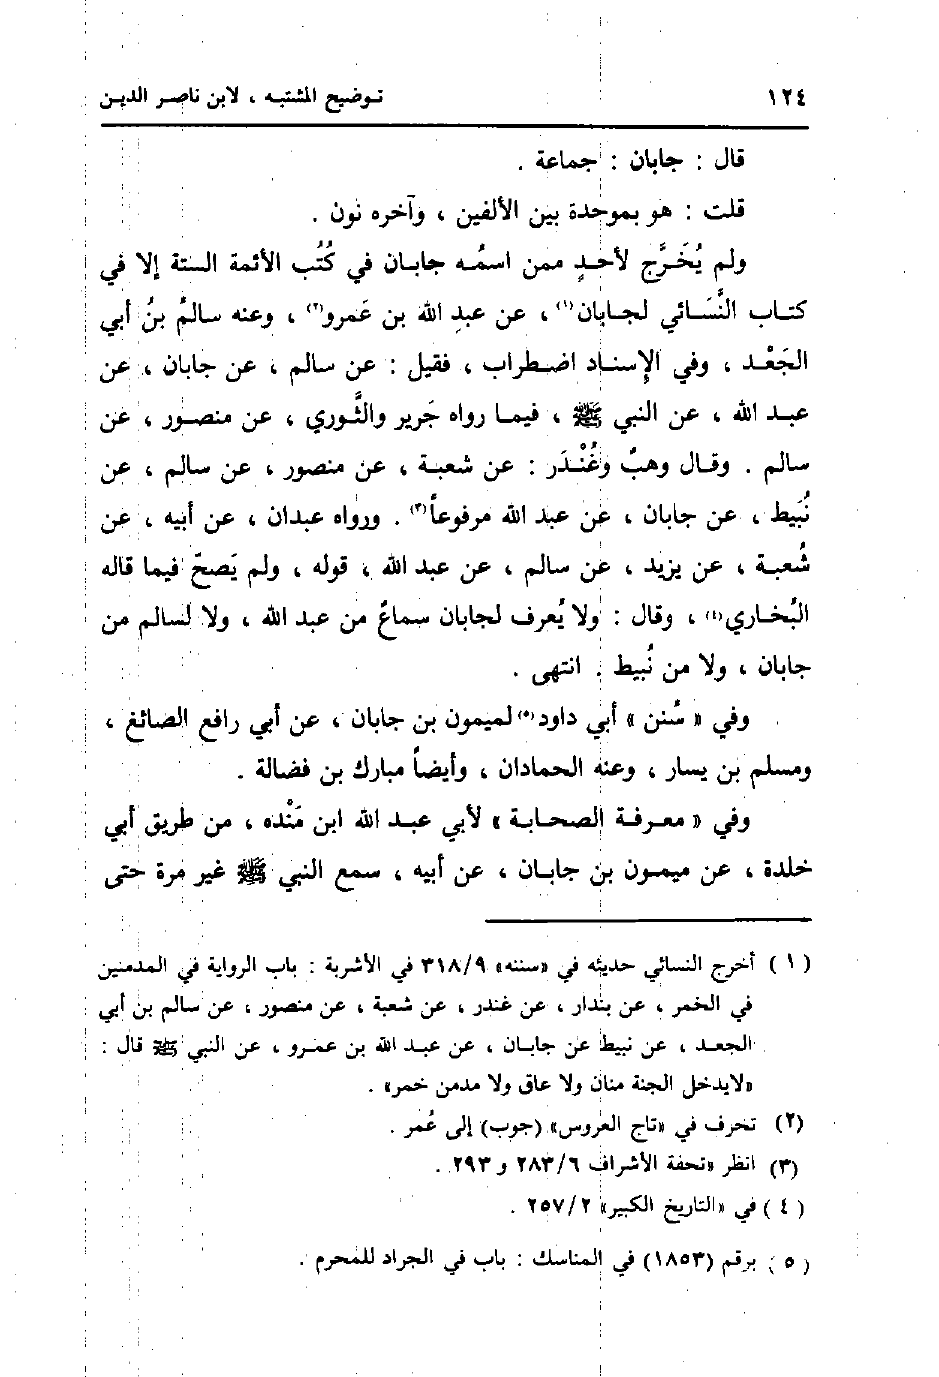 ١٢٤ توضيح المشتبه ، لابن ناصر الدين
قال : جابان : جماعة .
قلت : هو بموحدة بين الألفين ، وآخره نون .
ولم يُخَرَّج لأحدٍ ممن اسمُه جابان في كُتُب الأئمة الستة إلا في
كتاب النَّسَائي لجابان(١) ، عن عبدِ الله بن عَمرو(٢) ، وعنه سالمُ بنُ أبي
الجَعْد ، وفي الإسناد اضطراب ، فقيل : عن سالم ، عن جابان ، عن
عبد الله ، عن النبي ﷺ ، فيما رواه جَرير والثَّوري ، عن منصور ، عن
سالم . وقال وهبٌ وغُنْدَر : عن شعبة ، عن منصور ، عن سالم ، عن
نُبَيط ، عن جابان ، عن عبد الله مرفوعاً(٣) . ورواه عبدان ، عن أبيه ، عن
شُعبة ، عن يزيد ، عن سالم ، عن عبد الله ، قوله ، ولم يَصحّ فيما قاله
البُخاري(٤) ، وقال : ولا يُعرف لجابان سماعٌ من عبد الله ، ولا لسالم من
جابان ، ولا من نُبيط . انتهى .
وفي « سُنن » أبي داود(٥) لميمون بن جابان ، عن أبي رافع الصائغ ،
ومسلم بن يسار ، وعنه الحمادان ، وأيضاً مبارك بن فضالة .
وفي « معرفة الصحابة » لأبي عبد الله ابن مَنْده ، من طريق أبي
خلدة ، عن ميمون بن جابان ، عن أبيه ، سمع النبي ﷺ غير مرة حتى
(١) أخرج النسائي حديثه في «سننه» ٣١٨/٩ في الأشربة : باب الرواية في المدمنين
في الخمر ، عن بندار ، عن غندر ، عن شعبة ، عن منصور ، عن سالم بن أبي
الجعد ، عن نبيط عن جابان ، عن عبد الله بن عمرو ، عن النبي ﷺ قال :
«لايدخل الجنة منان ولا عاق ولا مدمن خمر» .
(٢) تحرف في «تاج العروس» (جوب) إلى عُمر .
(٣) انظر «تحفة الأشراف ٢٨٣/٦ و ٢٩٣ .
(٤) في «التاريخ الكبير» ٢٥٧/٢ .
(٥) برقم (١٨٥٣) في المناسك : باب في الجراد للمحرم .